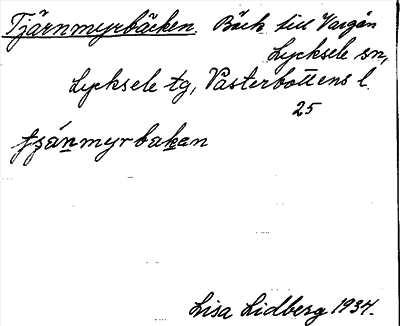 Tjärnmyrbäcken. Bäck till Vargån
Lycksele sn,
Lycksele tg, Västerbottens l.
25
Lisa Lidberg 1934.